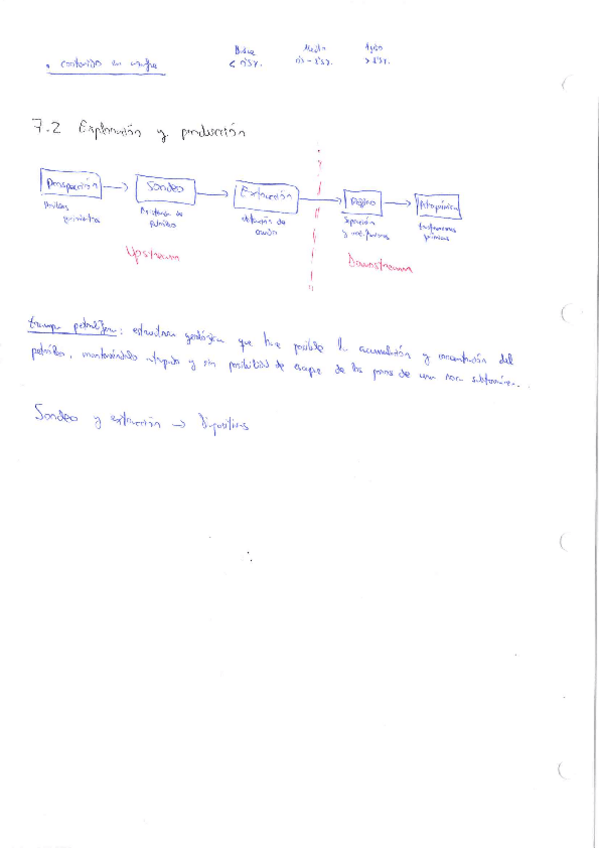 Dulce Medio Agrio
• contenido en azufre < 0'5%. 0'5 - 1'5%. > 1'5%.
7.2 Exploración y producción
Prospección → Sondeo → Extracción → Refino → Petroquímica
Existencia de obtención de Separación
petróleo crudo y químicas
Upstream Downstream
trampa petrolífera: estructura geológica que hace posible la acumulación y concentración del
petróleo, manteniéndolo atrapado y sin posibilidad de escape de los poros de una roca subterránea.
Sondeo y extracción → Diapositivas